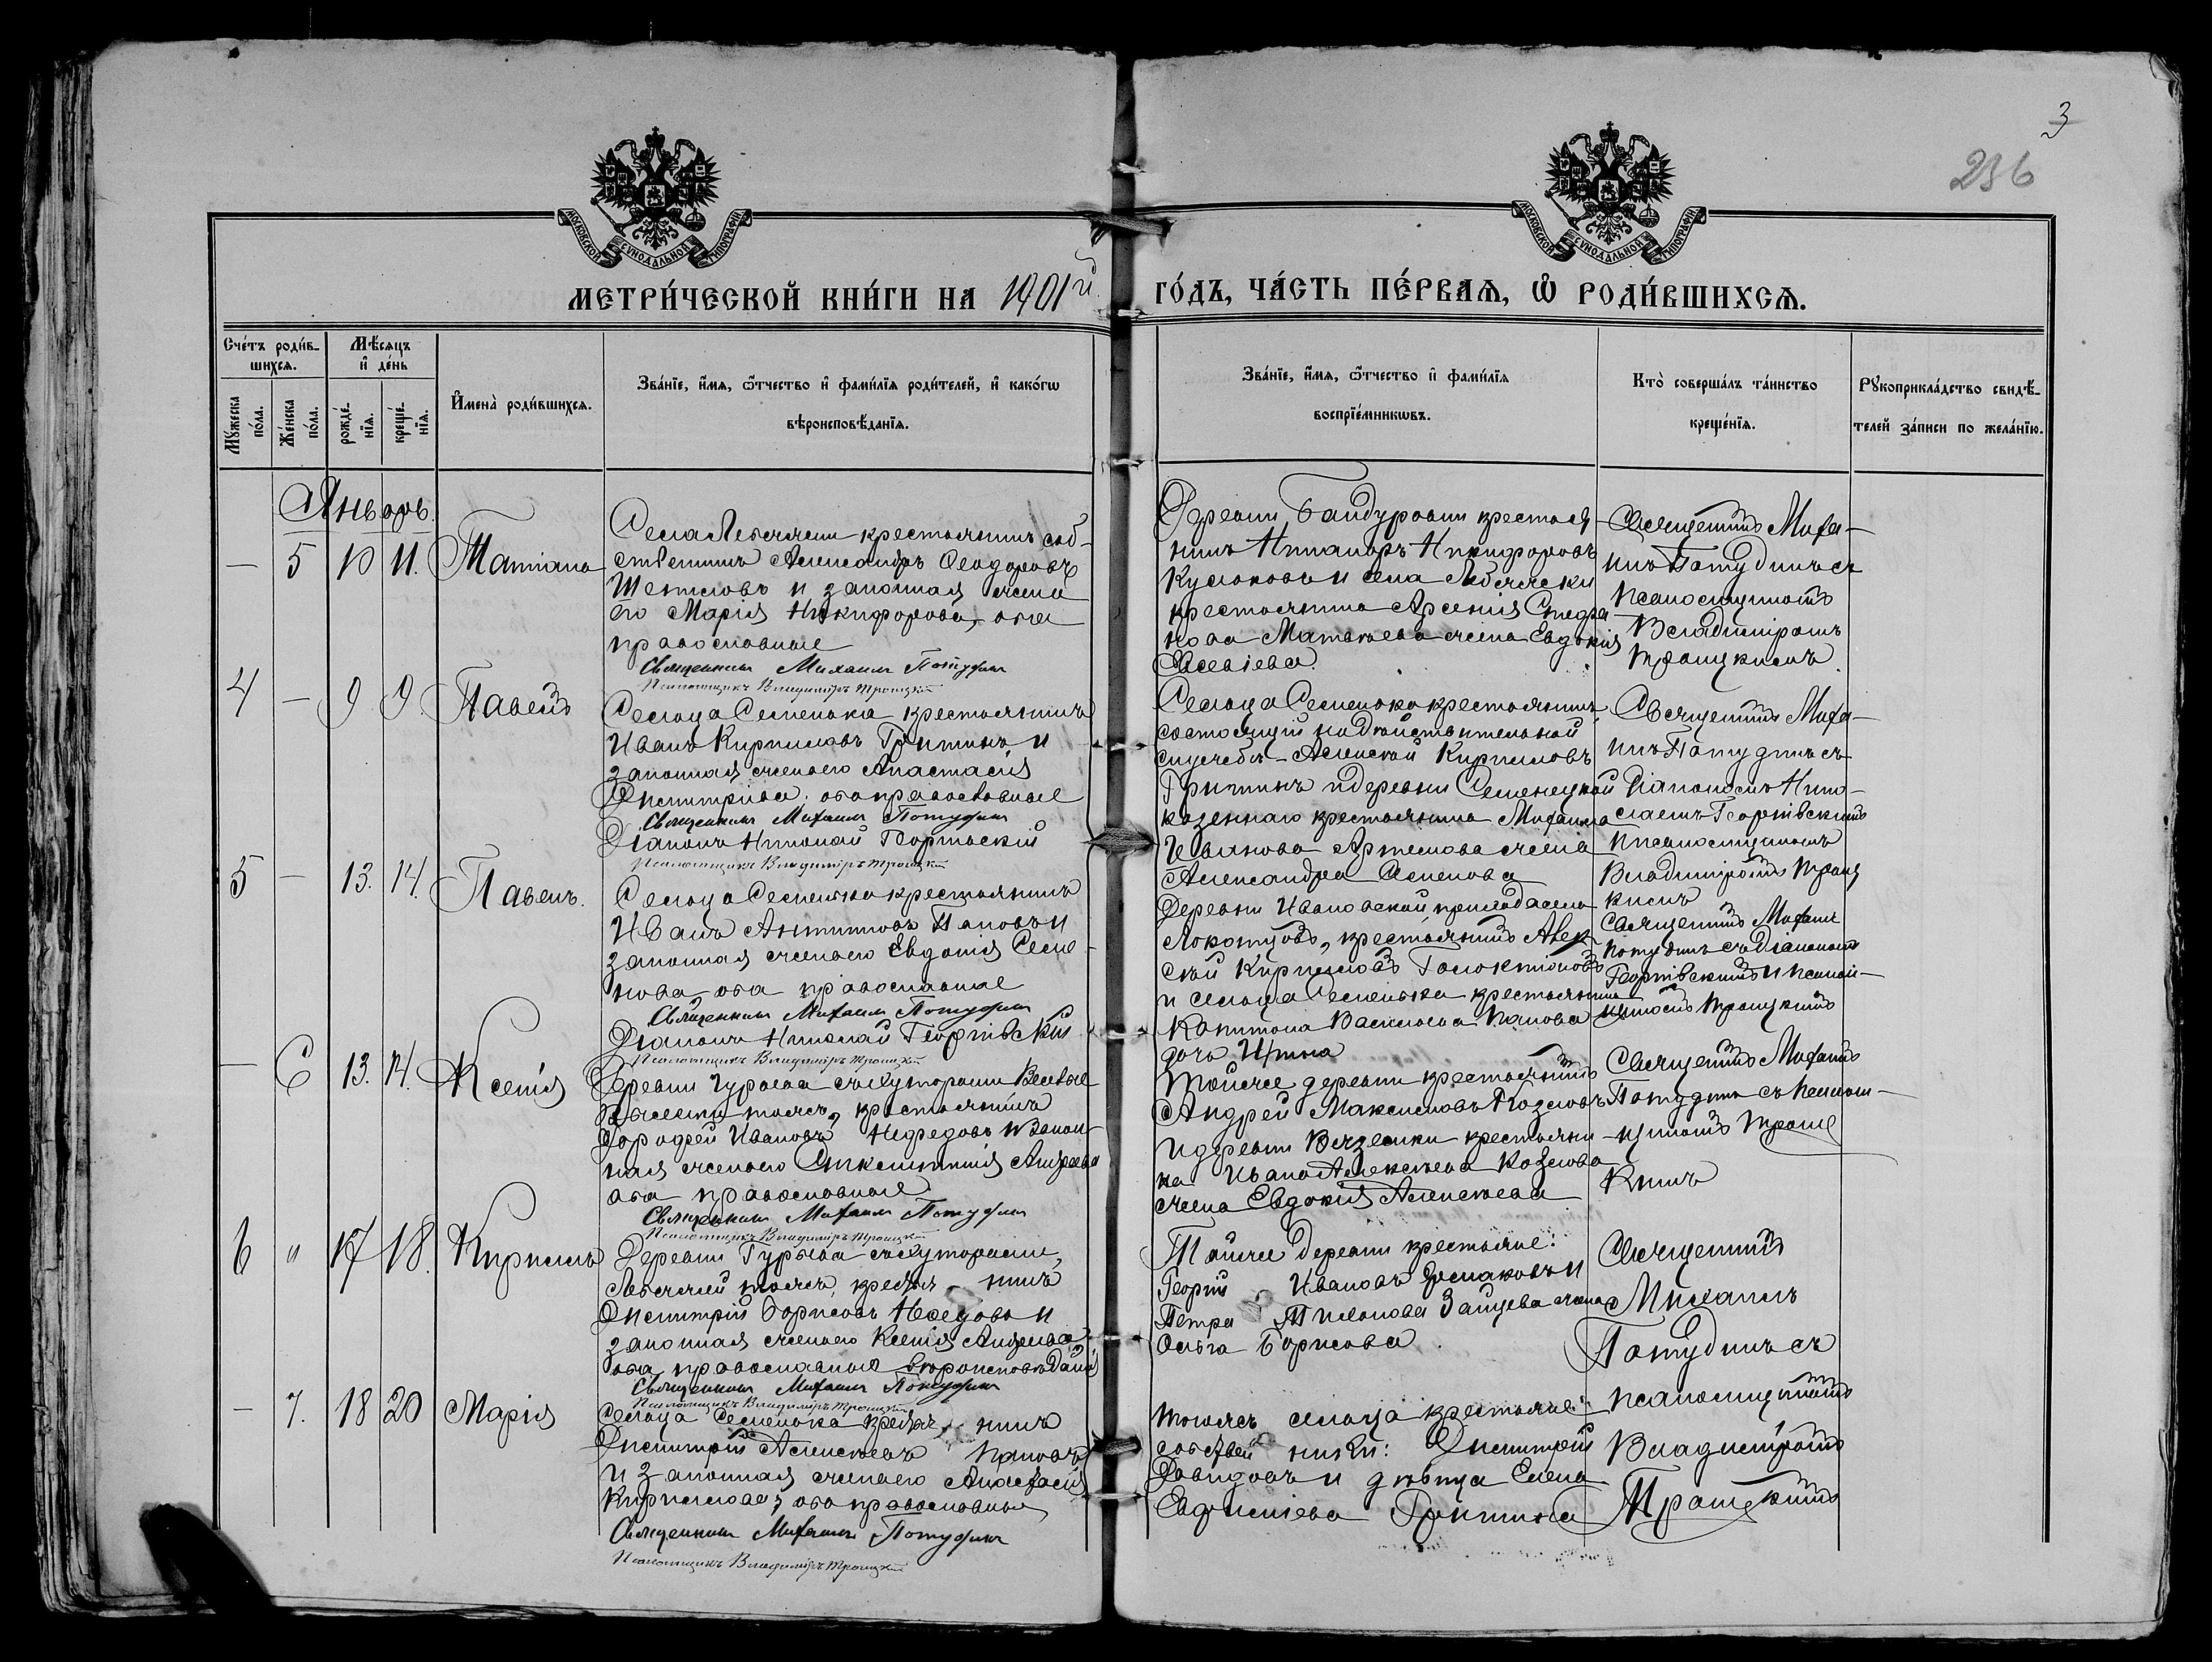 3
236
МОСКОВСКОЙ СѴНОДАЛЬНОЙ ТИПОГРАФІИ
МОСКОВСКОЙ СѴНОДАЛЬНОЙ ТИПОГРАФІИ
МЕТРИ́ЧЕСКОЙ КНИ́ГИ НА 1901й ГО́ДЪ, ЧА́СТЬ ПЕ́РВАѦ, Ѡ҆ РОДИ́ВШИХСѦ.
Сче́тъ роди́в-
шихся.
Мѣ́сяцъ
и҆ де́нь
Му́жеска по́ла.
Же́нска по́ла.
рожде́-
нїя.
креще́-
нїя.
И҆мена̀ роди́вшихся.
Зва́нїе, и҆́мя, ѻ҆́тчество и҆ фами́лїя роди́телей, и҆ како́гѡ
вѣроисповѣ́данїя.
Зва́нїе, и҆́мя, ѻ҆́тчество и҆ фами́лїя
воспрїе́мникѡвъ.
Кто̀ соверша́лъ та́инство
креще́нїя.
Рꙋкоприкла́дство свидѣ́-
телей за́писи по жела́нїю.
Январь.
— 5 10 11. Татіана
Села Лебяжьи крестьянинъ соб-
ственникъ Александръ Ѳеодоровъ
и законная жена
его Марія Никифорова, оба
православные
Священникъ Михаилъ Потудинъ
Псаломщикъ Владиміръ Троицкій
Деревни Бандуровки крестья-
нинъ Никаноръ Никифоровъ
и села Лебяжьи
крестьянина Арсенія
Матвѣева жена Евдокія
Священникъ Миха-
илъ Потудинъ съ
псаломщикомъ
Владиміромъ
Троицкимъ.
4 — 9 9. Павелъ
Сельца Семенька крестьянинъ
Иванъ Кирилловъ Грипинъ и
законная жена его Анастасія
Дмитріева. оба православные
Священникъ Михаилъ Потудинъ
Діаконъ Николай Георгіевскій
Псаломщикъ Владиміръ Троицкій
Сельца Семенька крестьянинъ
состоящій на дѣйствительной
службѣ — Алексѣй Кирилловъ
Грипинъ и деревни
казеннаго крестьянина Михаила
Иванова Артемова жена
Александра
Священникъ Миха-
илъ Потудинъ съ
Діакономъ Нико-
лаемъ Георгіевскимъ
и псаломщикомъ
Владиміромъ Троиц
кимъ
5 — 13. 14. Павелъ.
Сельца Семенька крестьянинъ
Иванъ Антиповъ Пановъ и
законная жена его Евдокія Семе-
нова оба православные
Священникъ Михаилъ Потудинъ
Діаконъ Николай Георгіевскій
Псаломщикъ Владиміръ Троицкій
Деревни Ивановской прихода села
крестьянинъ Алек-
сѣй Кирилловъ
и сельца Семенька крестьянина
Капитона Васильева Панова
дочь Ирина
Священникъ Михаилъ
Потудинъ съ Діакономъ
Георгіевскимъ и псалом-
щикомъ Троицкимъ
— 6 13. 14. Ксенія
Деревни Гурьева съ хуторами
тожъ, крестьянинъ
Дорофей Ивановъ Нефедовъ и закон-
ная жена его Андреева
оба православные
Священникъ Михаилъ Потудинъ
Псаломщикъ Владиміръ Троицкій
Той же деревни крестьянинъ
Андрей Максимовъ Козловъ
и деревни Вязовки крестьяни-
на Ивана Алексѣева Козлова
жена Евдокія Алексѣева
Священникъ Михаилъ
Потудинъ съ псалом-
щикомъ Троиц
кимъ
6 " 17 18. Кириллъ
Деревни Гурьева съ хуторами,
Лебяжей тожъ, крестья нинъ
Дмитрій Борисовъ Нефедовъ и
законная жена его Ксенія Андреева
оба православные вѣроисповѣданія
Священникъ Михаилъ Потудинъ
Псаломщикъ Владиміръ Троицкій
Той же деревни крестьяне:
Георгій Ивановъ Ермаковъ и
Петра Тихонова Зайцева жена
Ольга Борисова.
Священникъ
Михаилъ
Потудинъ съ
— 7. 18 20 Марія
Сельца Семенька крестья нинъ
Дмитрій Алексѣевъ Пановъ
и законная жена его Анастасія
Кириллова; оба православные
Священникъ Михаилъ Потудинъ
Псаломщикъ Владиміръ Троицкій
Тогожъ сельца крестьяне
собствен ники: Дмитрій
Давидовъ и дѣвица Елена
Евфиміева Грипина
псаломщикомъ
Владиміромъ
Троицкимъ